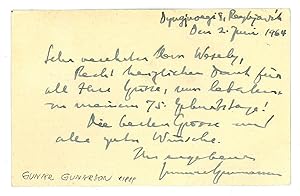 Dyngjuvegi 8, Reykjavík
Den 2. Juni 1964
Sehr verehrter Herr Wesely,
Recht herzlichen Dank für
all Ihre Grüsse, nun
zu meinem 75. Geburtstage!
Die besten Grüsse und
alle guten Wünsche.
Ihr ergebener
Gunnar Gunnarsson
GUNNAR GUNARSON